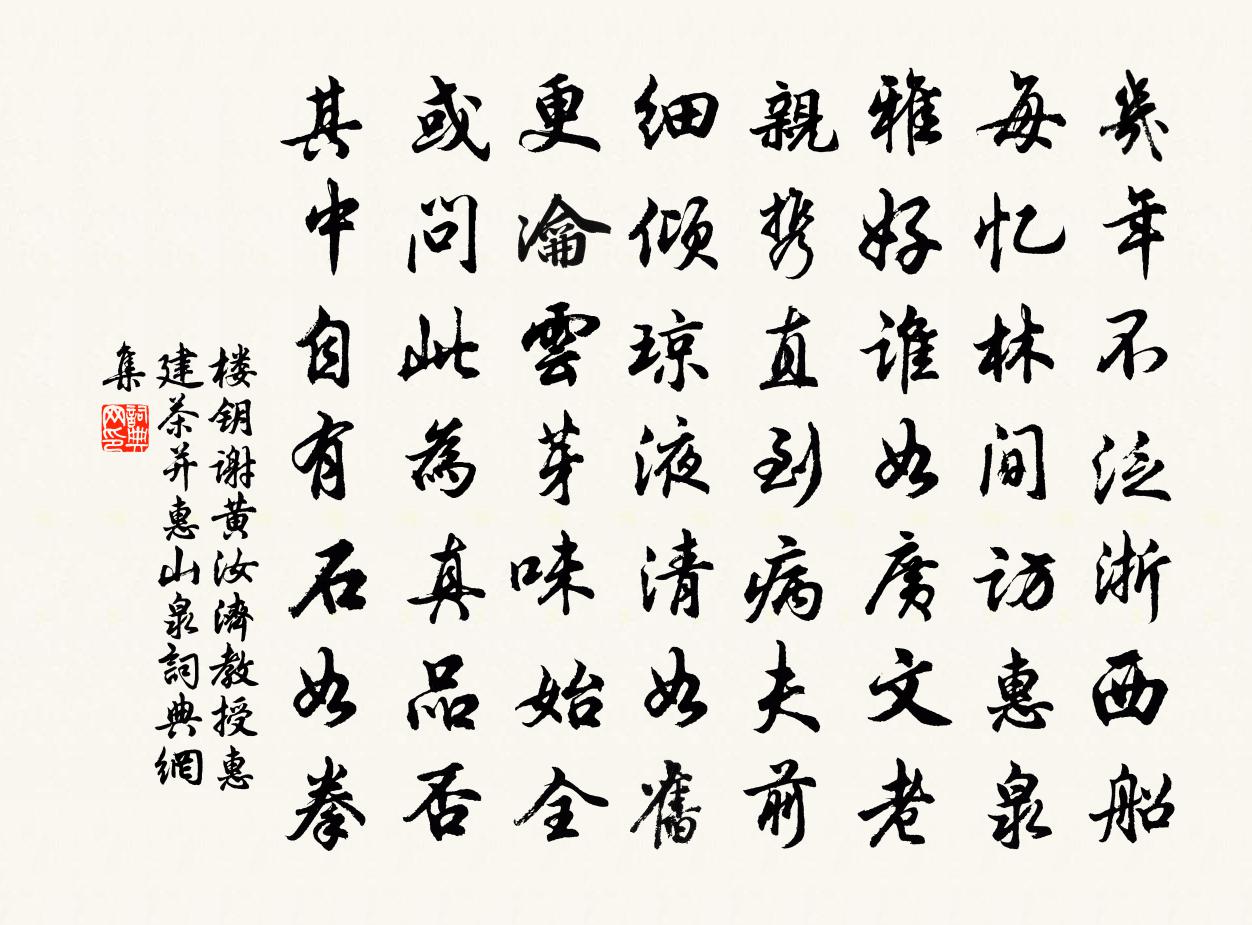 幾年不泛浙西船
每忆林間訪惠泉
雅好誰如廣文老
親携直到病夫前
细倾琼液清如舊
更瀹雲芽味始全
或問此為真品否
其中自有石如拳
楼钥谢黄汝濟教授惠
建茶并惠山泉詞典網
集
詞典
网印